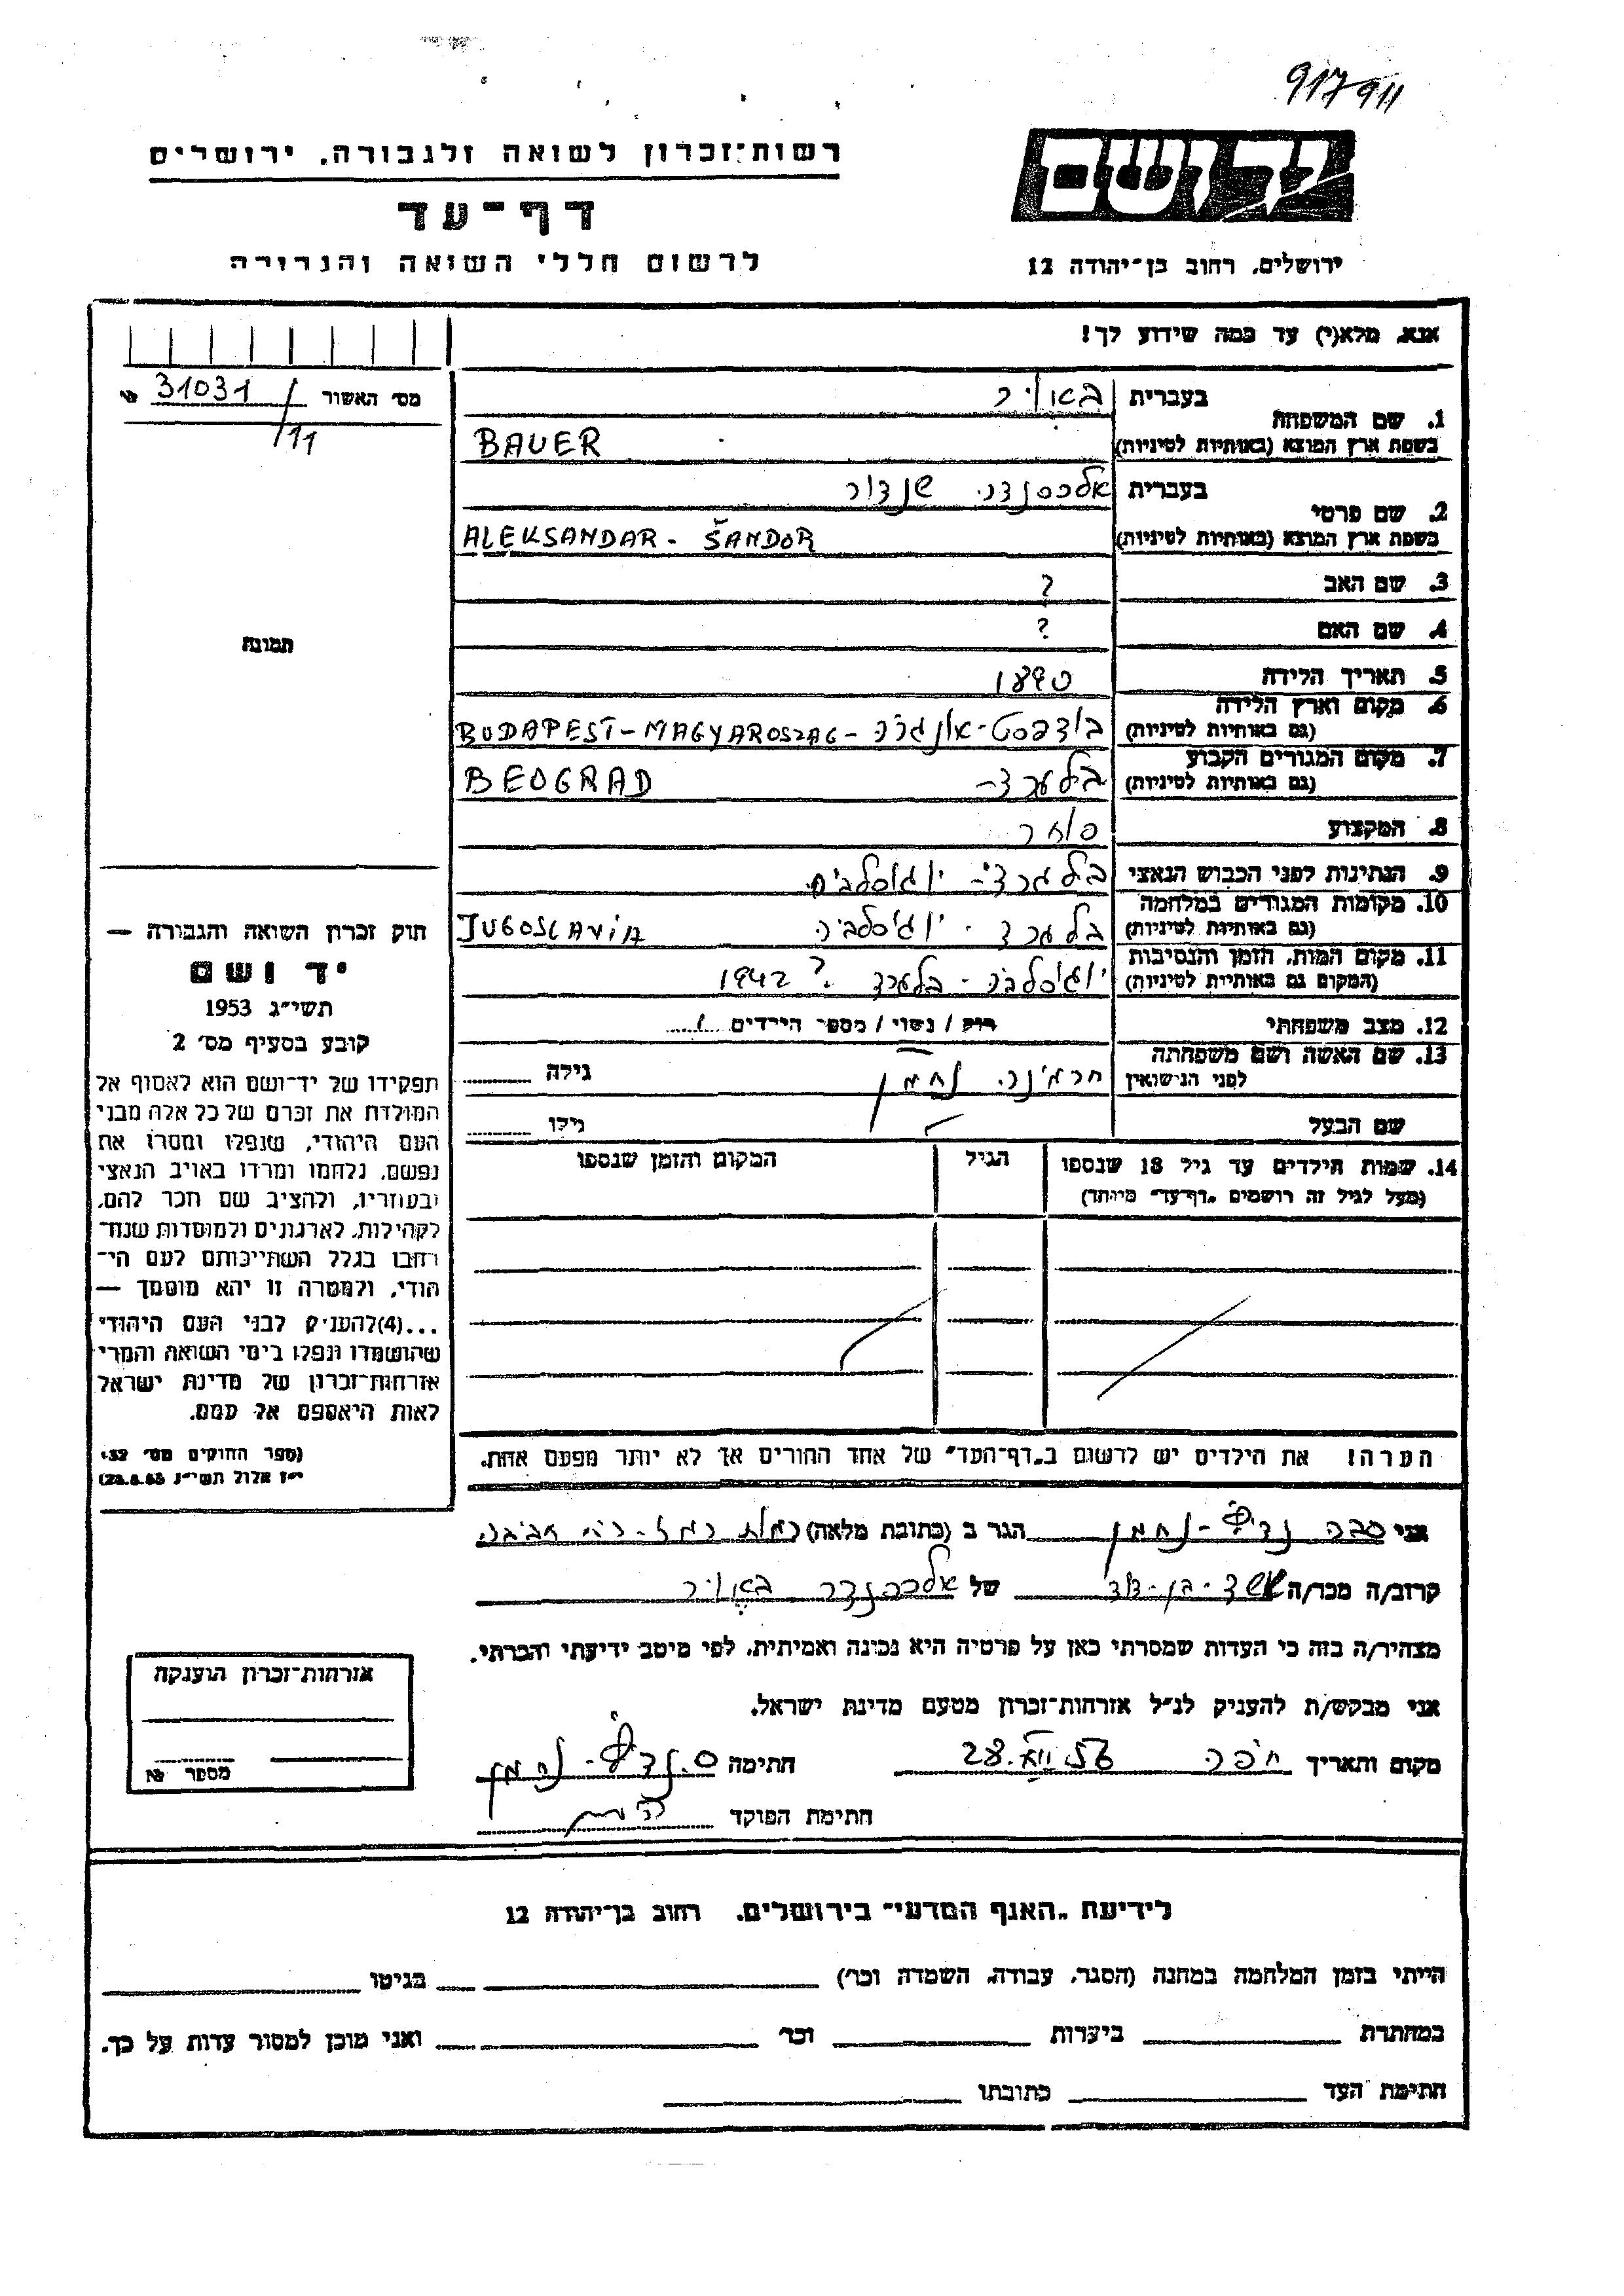 917911
רשות־זכרון לשואה ולגבורה, ירושלים
דף־עד
לרשום חללי השואה והגבורה
יד ושם
ירושלים, רחוב בן־יהודה 12
אנא, מלא(י) עד כמה שידוע לך!
מס׳ האשור 31031 №
/11
1. שם המשפחה
בעברית באויר
בשפת ארץ המוצא (באותיות לטיניות) BAUER
2. שם פרטי
בעברית אלכסנדר. שנדור
בשפת ארץ המוצא (באותיות לטיניות) ALEKSANDAR - ŠANDOR
3. שם האב ?
4. שם האם ?
5. תאריך הלידה 1890
6. מקום וארץ הלידה
(גם באותיות לטיניות) בודפסט - אונגריה - BUDAPEST - MAGYAROSZAG
7. מקום המגורים הקבוע
(גם באותיות לטיניות) בלגרד - BEOGRAD
8. המקצוע סוחר
9. הנתינות לפני הכבוש הנאצי בלגרד - יוגוסלביה
10. מקומות המגורים במלחמה
(גם באותיות לטיניות) בלגרד - יוגוסלביה JUGOSLAVIA
11. מקום המות, הזמן והנסיבות
(המקום גם באותיות לטיניות) יוגוסלביה - בלגרד ? 1942
12. מצב משפחתי רוק / נשוי / מספר הילדים
13. שם האשה ושם משפחתה
לפני הנישואין חרמינה נחמן גילה
שם הבעל גילו
14. שמות הילדים עד גיל 18 שנספו הגיל המקום והזמן שנספו
(מעל לגיל זה רושמים „דף־עד״ מיוחד)
הערה! את הילדים יש לרשום ב„דף־העד״ של אחד ההורים אך לא יותר מפעם אחת.
תמונה
חוק זכרון השואה והגבורה —
יד ושם
תשי״ג 1953
קובע בסעיף מס׳ 2
תפקידו של יד־ושם הוא לאסוף אל
המולדת את זכרם של כל אלה מבני
העם היהודי, שנפלו ומסרו את
נפשם, נלחמו ומרדו באויב הנאצי
ובעוזריו, ולהציב שם וזכר להם,
לקהילות, לארגונים ולמוסדות שנח־
רבו בגלל השתייכותם לעם הי־
הודי, ולמטרה זו יהא מוסמך —
...(4) להעניק לבני העם היהודי
שהושמדו ונפלו בימי השואה והמרי
אזרחות־זכרון של מדינת ישראל
לאות היאספם אל עמם.
(ספר החוקים מס׳ 132,
י״ז אלול תשי״ג 28.8.53)
אני נחמן הגר ב (כתובת מלאה)
קרוב/ה מכר/ה של אלכסנדר באויר
מצהיר/ה בזה כי העדות שמסרתי כאן על פרטיה היא נכונה ואמיתית, לפי מיטב ידיעתי והכרתי.
אני מבקש/ת להעניק לנ״ל אזרחות־זכרון מטעם מדינת ישראל.
מקום ותאריך חיפה 28. חתימה נחמן
חתימת הפוקד
אזרחות־זכרון הוענקה
מספר №
לידיעת „האגף המדעי״ בירושלים, רחוב בן־יהודה 12
הייתי בזמן המלחמה במחנה (הסגר, עבודה, השמדה וכו׳) בגיטו
במחתרת ביערות וכו׳ ואני מוכן למסור עדות על כך.
חתימת העד כתובתו